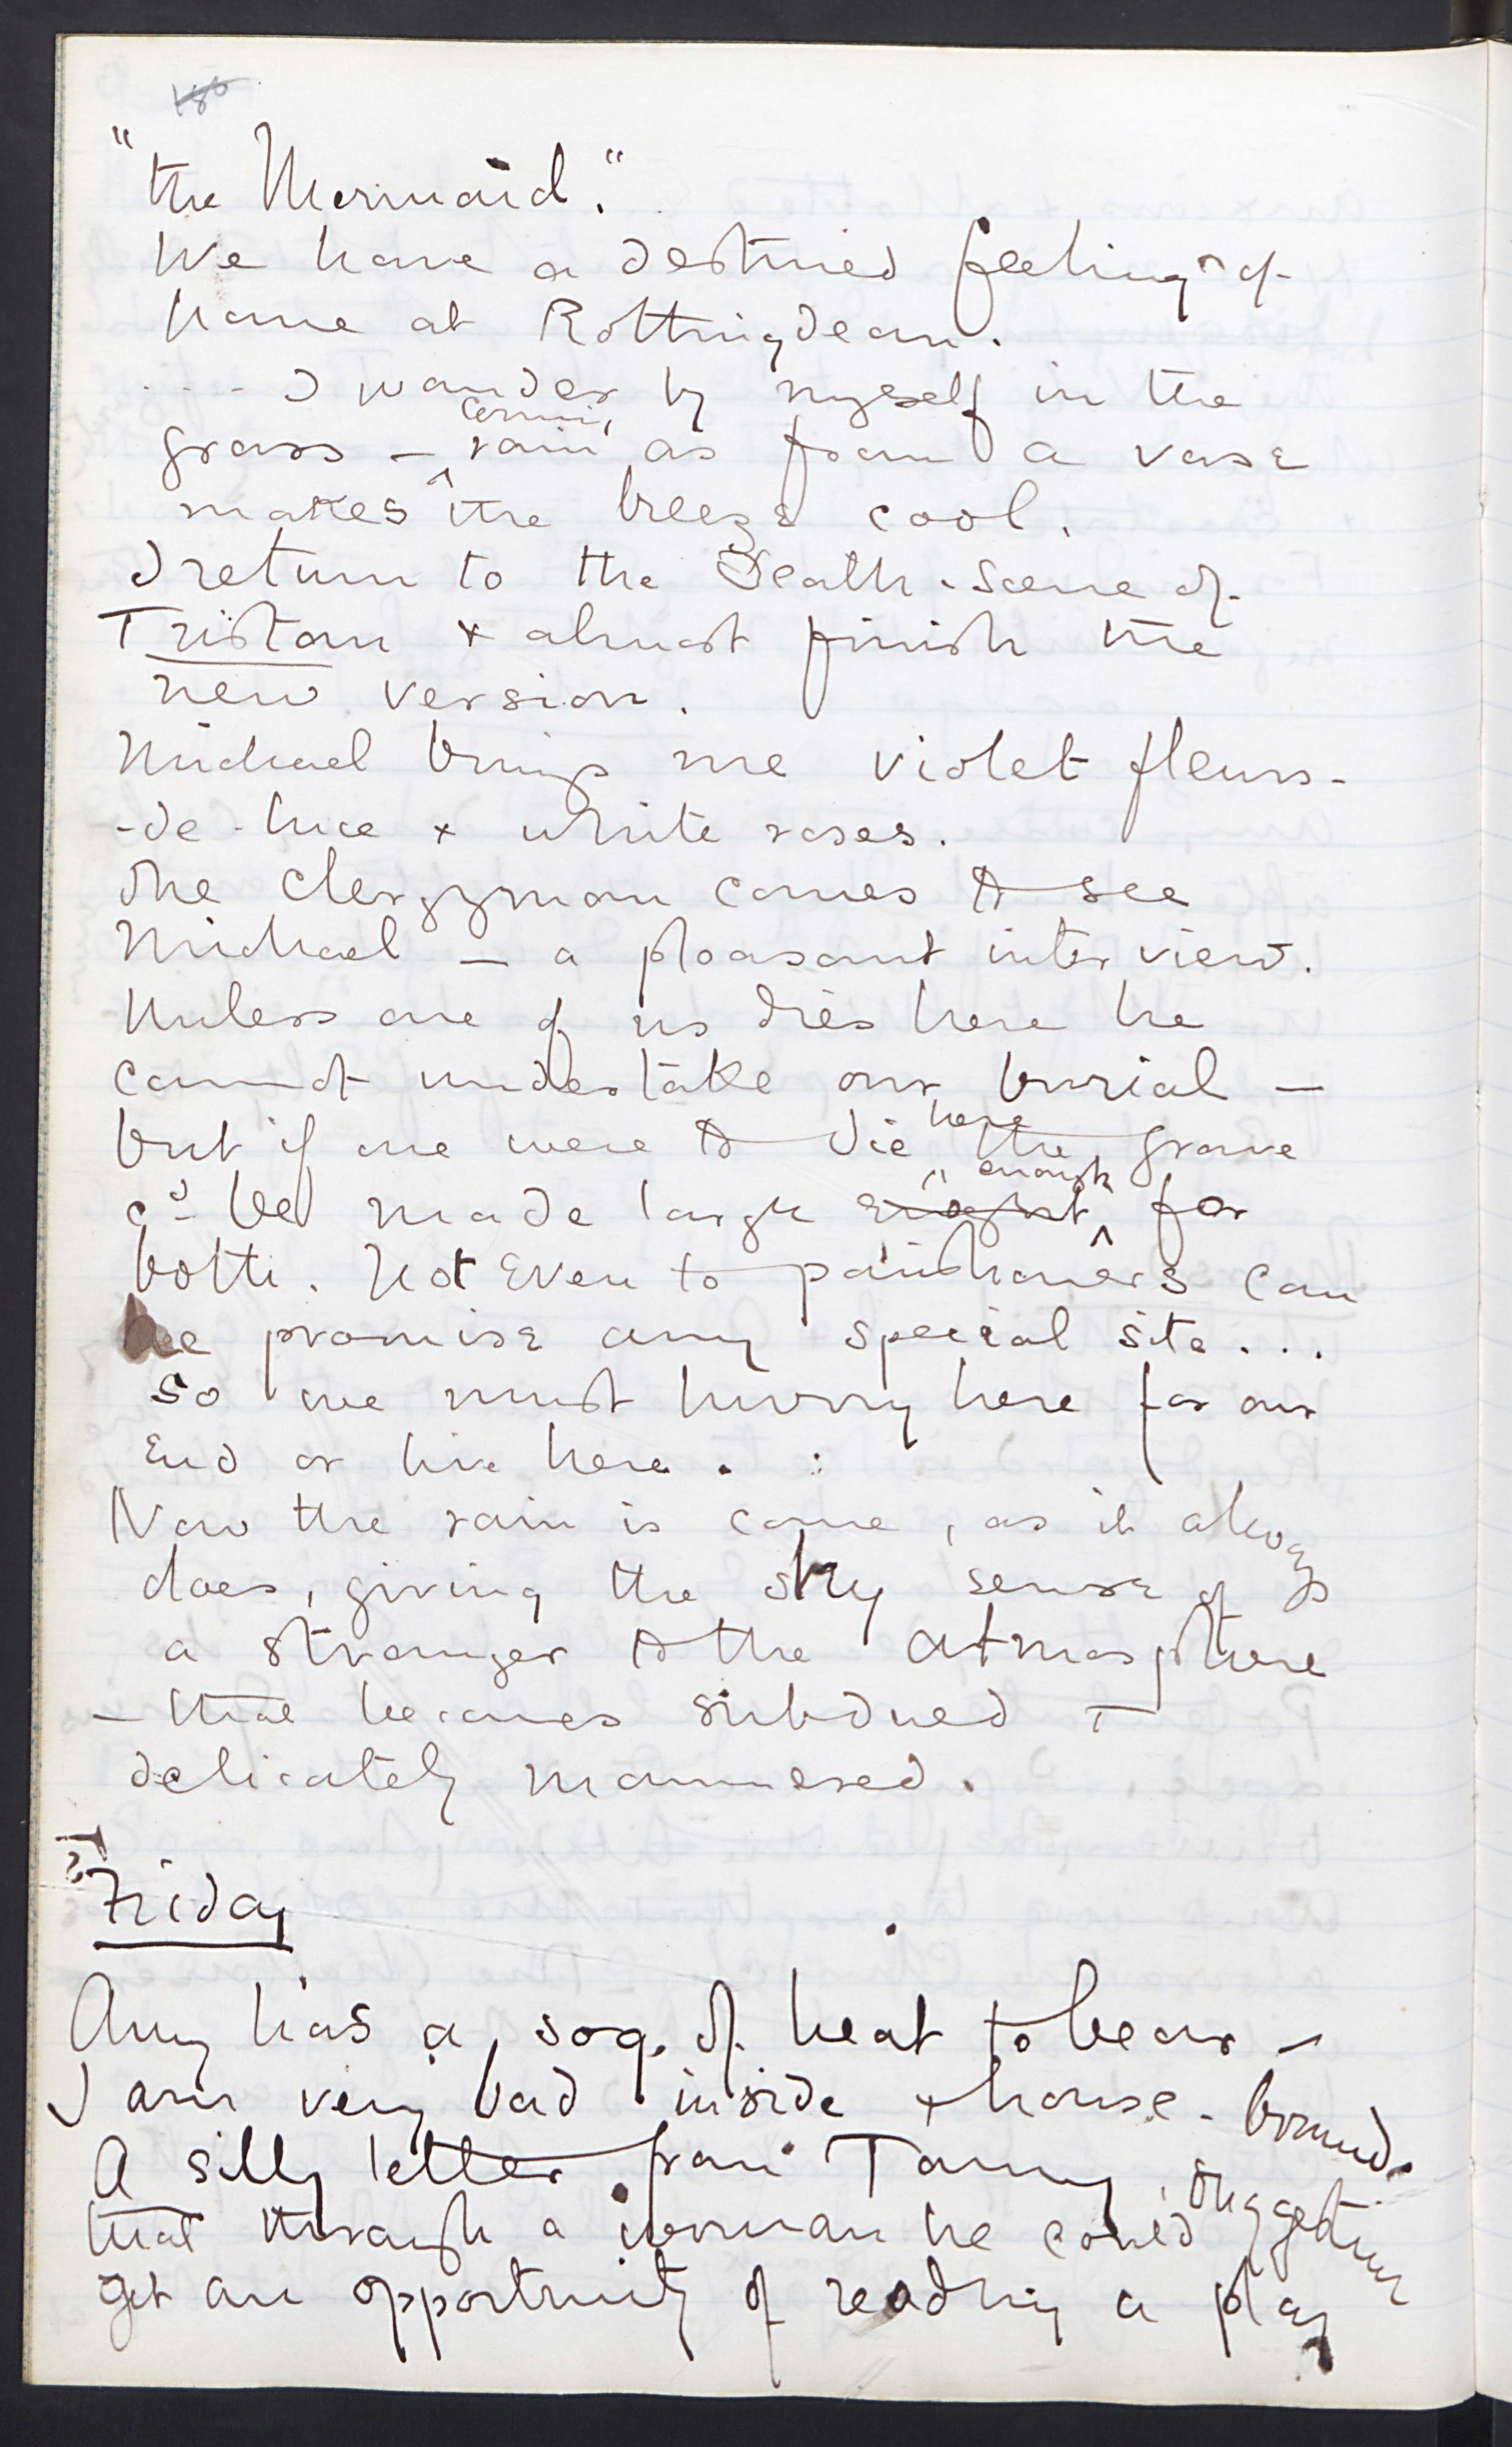 186
"the Mermaid."
We have a destined feeling of
home at Rottingdean.
.... I wander by myself in the
coming,
grass — rain as from a vase
makes the breeze cool.
I return to the Death-scene of
Tristan & almost finish the
new version.
Michael brings me violet fleurs-
-de-luce & white roses.
The Clergyman comes to see
Michael — a pleasant interview.
Unless one of us dies here he
cannot undertake our burial —
here
but if one were to die the grave
enough
cd be made large for
both. Not Even to parishioners can
he promise any special site...
So we must hurry here for our
End or live here.
Now the rain is come, as it always
does, giving the shy sense of
a stranger to the atmosphere
— that becomes subdued &
delicately mannered.
Friday
Amy has a of heat to bear —
I am very bad inside & house-bound.
A silly letter from Tommy, suggesting
that through a woman he could
get an opportunity of reading a play